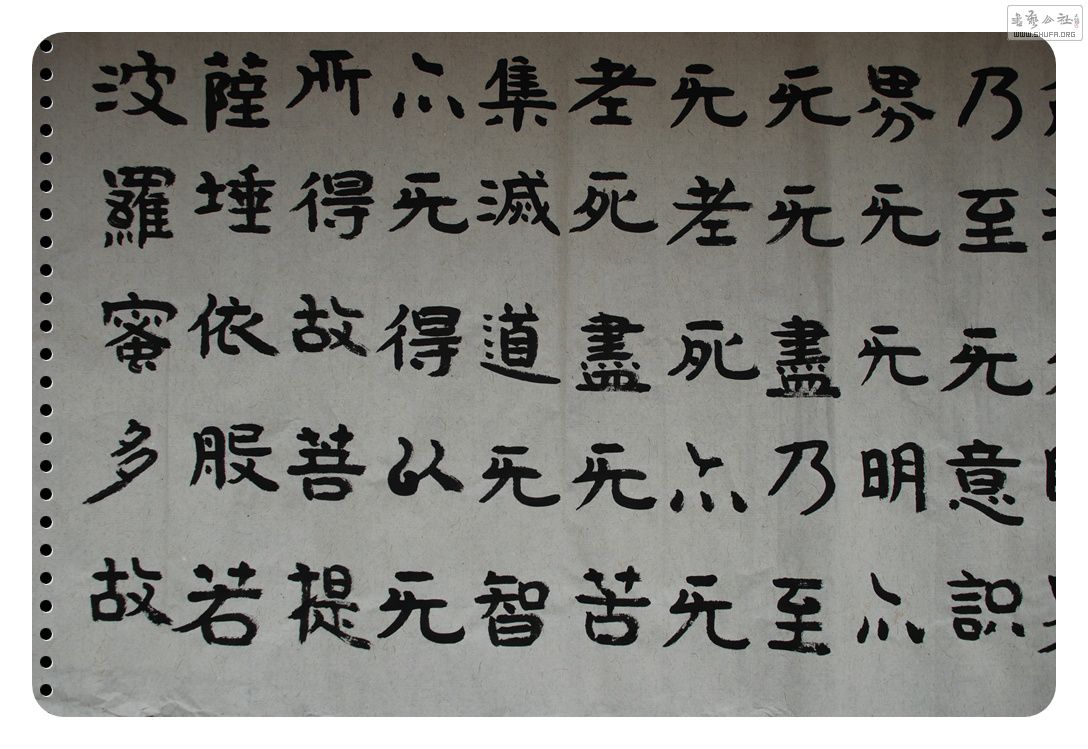 乃至无意识
界无无明亦
无无盡乃至
无老死亦无
老死盡无苦
集滅道无智
亦无得以无
所得故菩提
薩埵依般若
波羅蜜多故
书艺公社
WWW.SHUFA.ORG